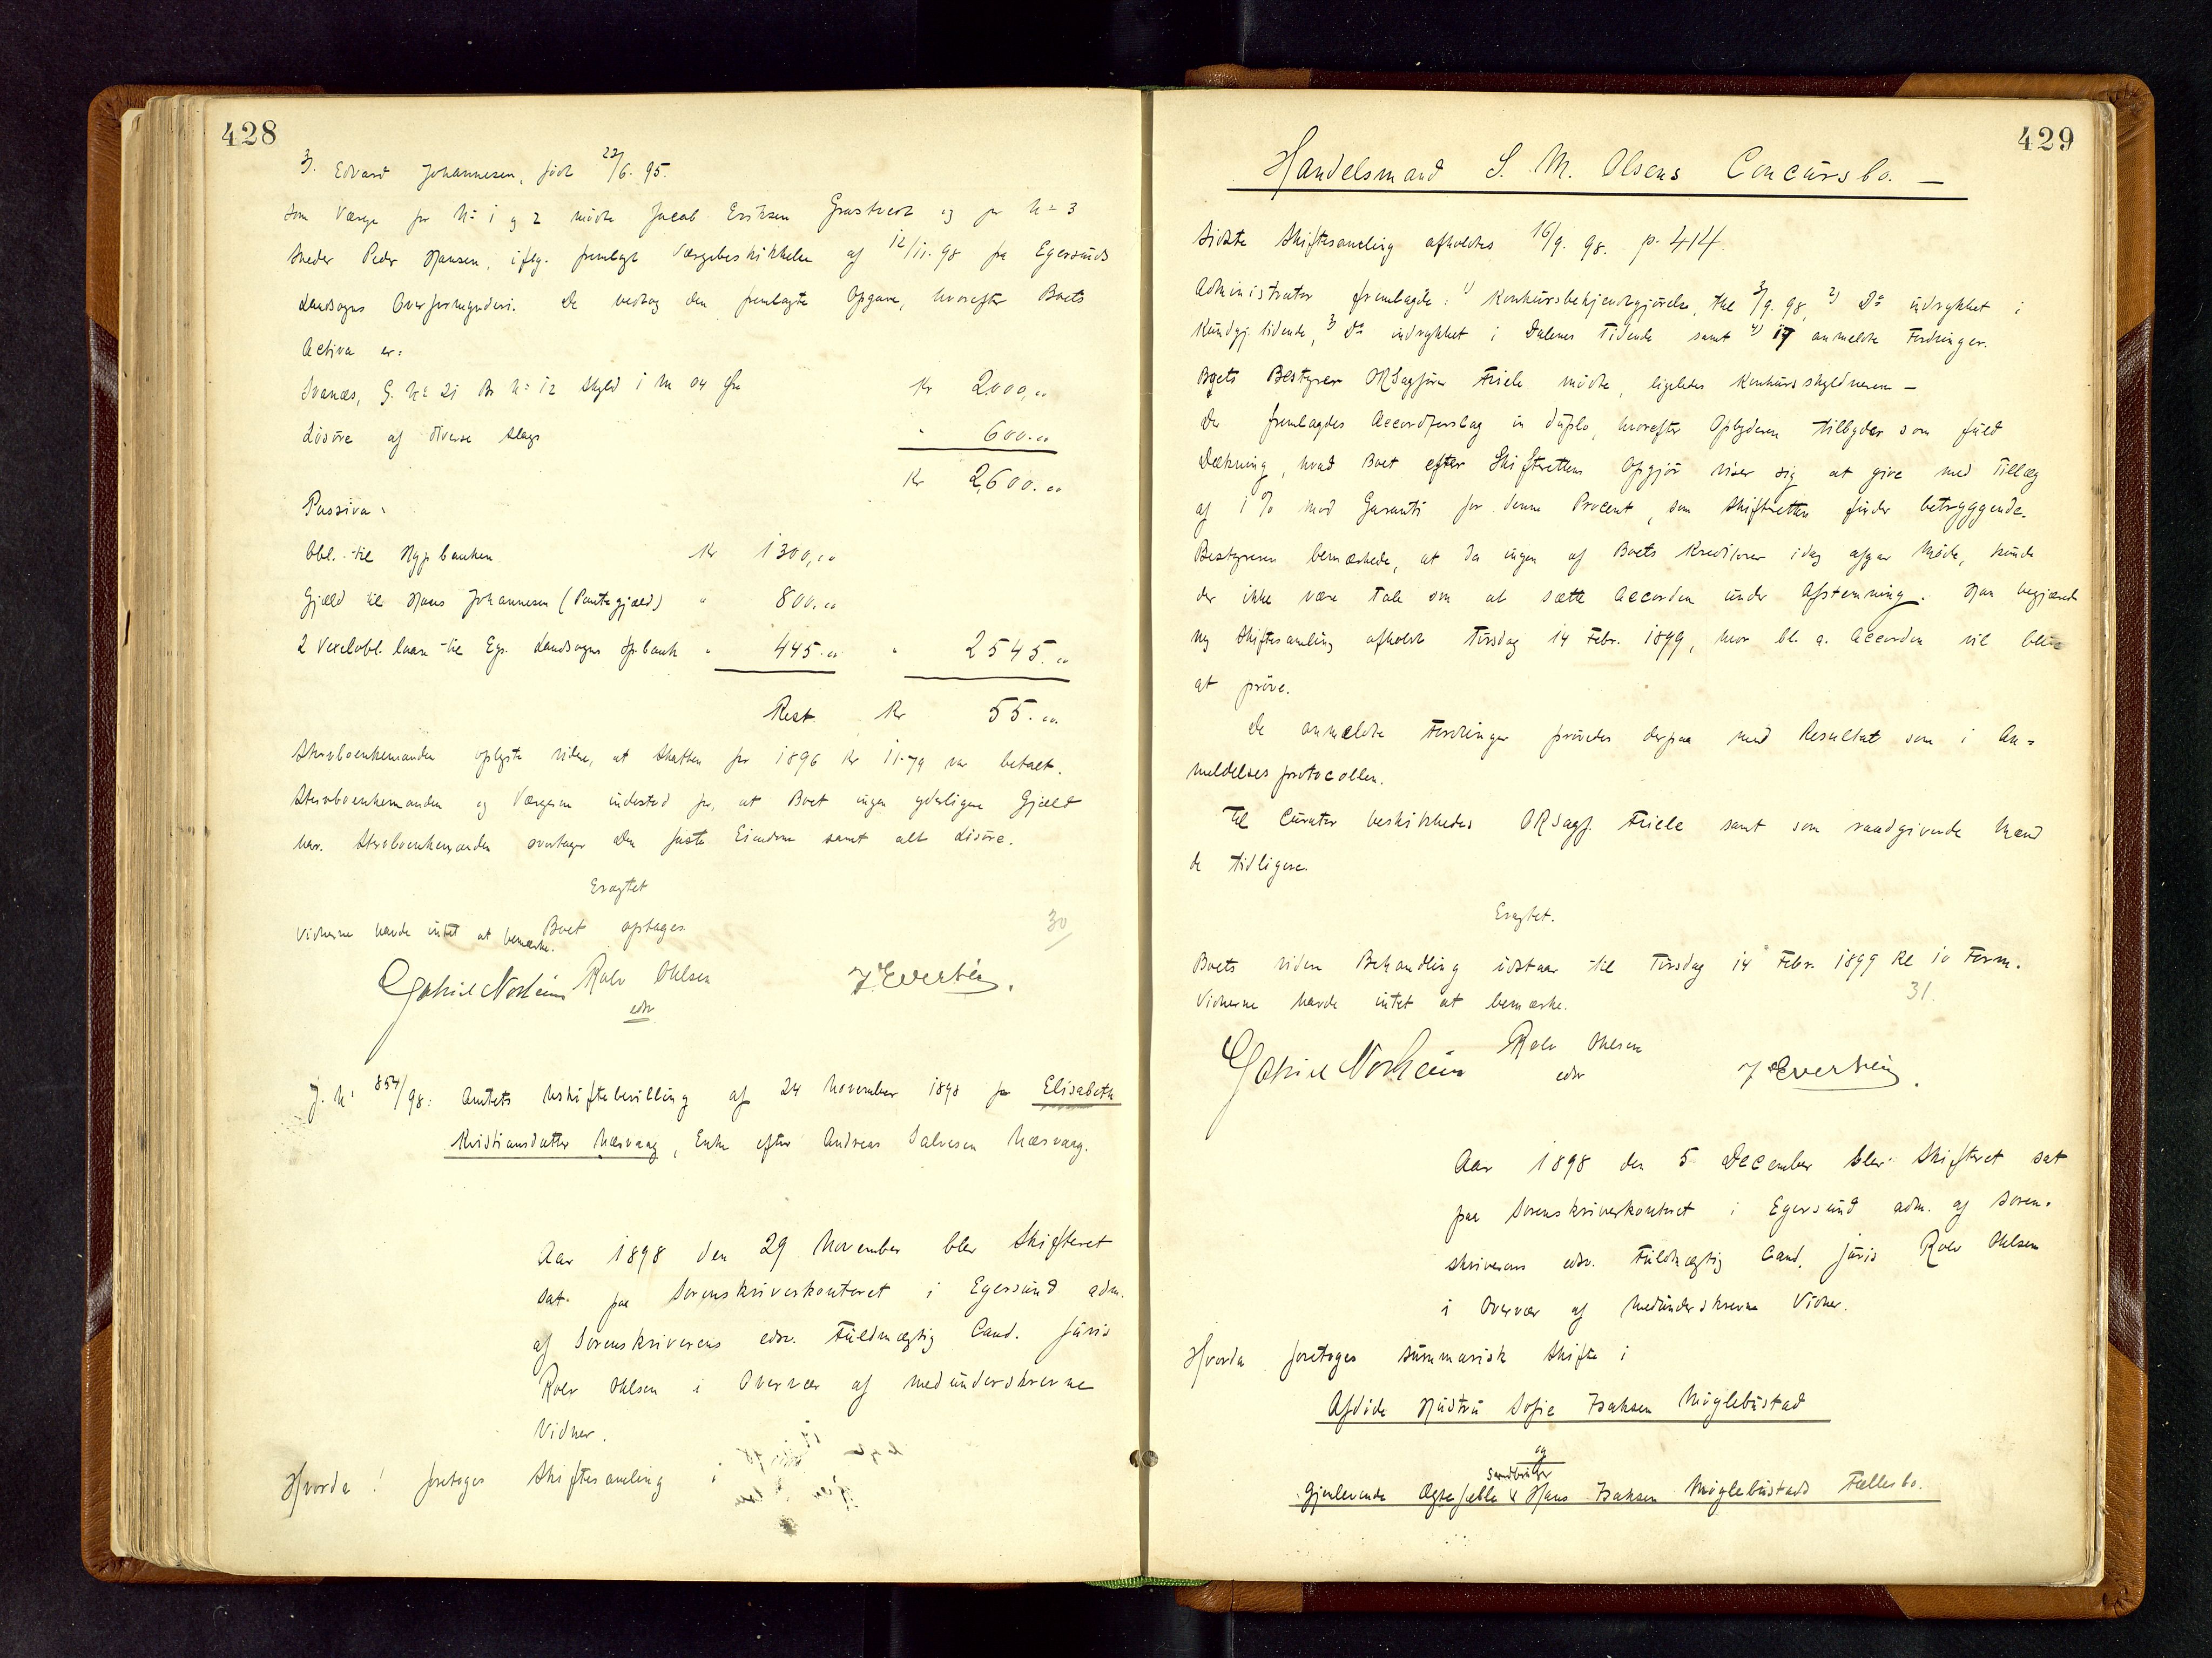 428
3. Edvard Johannesen, født 22/6. 95.
Som Værge for No 1 og 2 mødte Jacob Eriksen Grastveit og for No 3
Smeder Peder Hansen, iflg. fremlagt Værgebeskikkelse af 12/11. 98 fra Egersunds
Landsogns Overformynderi. De vedtog den fremlagte Opgave, hvorefter Boets
Activa er:
Svanæs, G. No 21 Br No 12 Skyld 1 M 04 Øre Kr 2000,00
Løsøre af diverse Slags " 600.00
Kr 2,600.00
Passiva:
Obl. til Hyp banken Kr 1300,00
Gjæld til Hans Johannesen (Pantegjæld) " 800.00
2 Vexelobl. laan til Eg. Landsogns Sp.bank " 445.00 " 2545.00
Rest Kr 55.00
Stervboenkemanden oplyste videre, at Skatten for 1896 Kr 11.79 var betalt.
Stervboenkemanden og Værgerne indestod for, at Boet ingen yderligere Gjæld
har. Stervboenkemanden overtager den faste Eiendom samt alt Løsøre.
Eragtet
Boet optages.
Vidnerne havde intet at bemærke.
30
Gabriel Nosheim Rolv Ohlsen
edsv
J. Evertsen.
J. No 854/98: Amtets Uskiftebevilling af 24 November 1898 for Elisabeth
Kristiansdatter Næsvaag, Enke efter Andreas Salvesen Næsvaag.
Aar 1898 den 29 November blev Skifteret
sat paa Sorenskriverkontoret i Egersund adm.
af Sorenskriverens edsv. Fuldmægtig Cand. juris
Rolv Ohlsen i Overvær af medunderskrevne
Vidner.
Hvorda! foretoges Skiftesamling i
429
Handelsmand S. M. Olsens Concursbo. —
Sidste Skiftesamling afholdtes 16/9. 98. p. 414.
Administrator fremlagde: 1) Konkursbekjendtgjørelse, thl 3/9. 98, 2) Do indrykket i
Kundgj. tidende, 3) Do indrykket i Dalenes Tidende samt 4) 17 anmeldte Fordringer.
Boets Bestyrer ORSagfører Friele mødte, ligeledes Konkursskyldneren —
Der fremlagdes Accordforslag in duplo, hvorefter Opbyderen tilbyder som fuld
Dækning, hvad Boet efter Skifterettens Opgjør viser sig at give med Tillæg
af 1 % mod Garanti for denne Procent, som Skifteretten finder betryggende.
Bestyreren bemærkede, at da ingen af Boets Kreditorer idag afgav Møde, kunde
der ikke være Tale om at sætte Accorden under Afstemning. Han begjærede
ny Skiftesamling afholdt Tirsdag 14 Febr. 1899, hvor bl. a. Accorden vil blive
at prøve.
De anmeldte Fordringer prøvedes derpaa med Resultat som i An=
meldelsesprotocollen.
Til Curator beskikkedes ORSagf. Friele samt som raadgivende Mænd
de tidligere.
Eragtet.
Boets videre Behandling udstaar til Tirsdag 14 Febr. 1899 Kl 10 Form.
Vidnerne havde intet at bemærke.
31.
Gabriel Nosheim Rolv Ohlsen
edsv
J Evertsen.
Aar 1898 den 5 December blev Skifteret sat
paa Sorenskriverkontoret i Egersund adm. af Soren=
skriverens edsv. Fuldmægtig Cand. juris Rolv Ohlsen
i Overvær af medunderskrevne Vidner.
Hvorda foretoges summarisk Skifte i
Afdøde Hustru Sofie Isaksen Møglebustad
og
Gjenlevende Ægtefælle Gaardbruger Hans Isaksen Møglebustads Fællesbo.